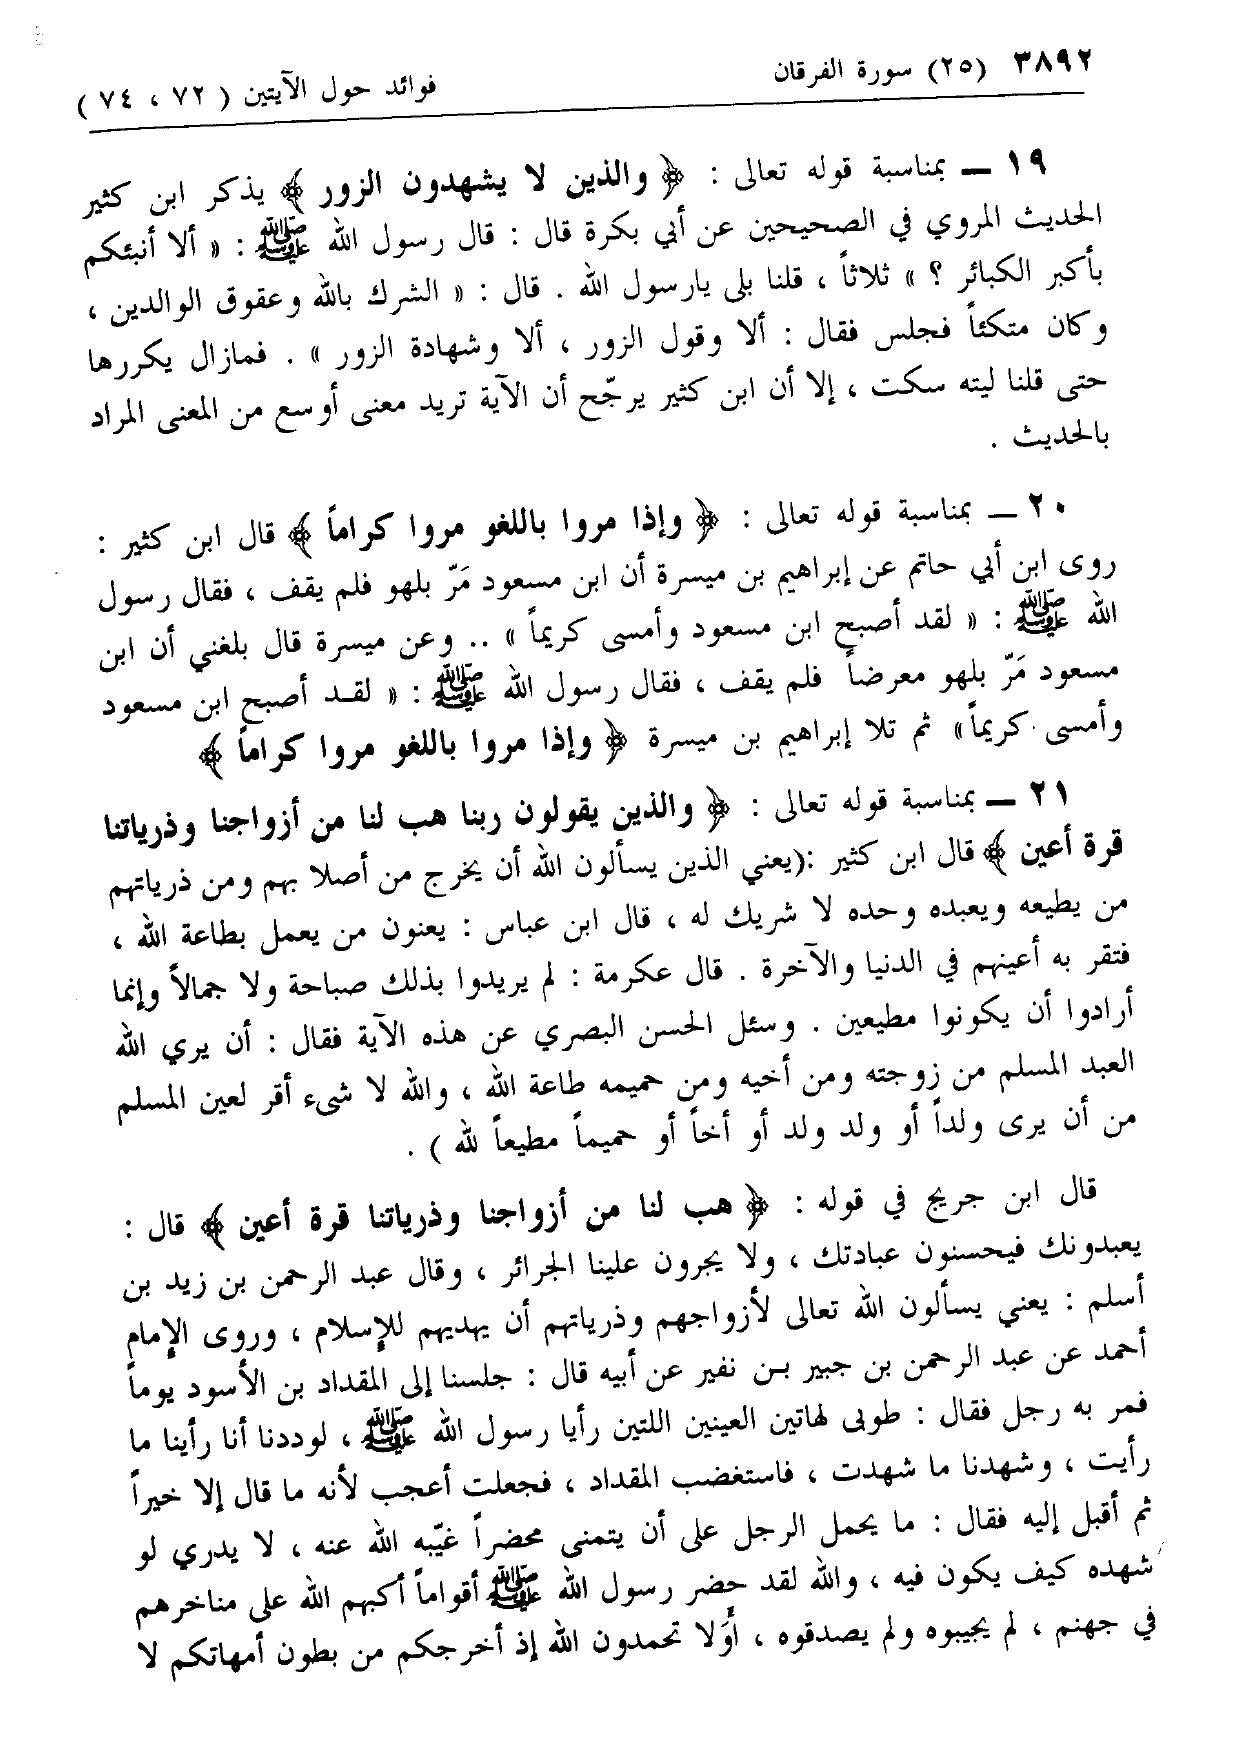 ٣٨٩٢ (٢٥) سورة الفرقان
فوائد حول الآيتين ( ٧٢ ، ٧٤ )
١٩ ــ بمناسبة قوله تعالى : ﴿ والذين لا يشهدون الزور ﴾ يذكر ابن كثير
الحديث المروي في الصحيحين عن أبي بكرة قال : قال رسول الله ﷺ : « ألا أنبئكم
بأكبر الكبائر ؟ » ثلاثاً ، قلنا بلى يارسول الله . قال : « الشرك بالله وعقوق الوالدين ،
وكان متكئاً فجلس فقال : ألا وقول الزور ، ألا وشهادة الزور » . فمازال يكررها
حتى قلنا ليته سكت ، إلا أن ابن كثير يرجّح أن الآية تريد معنى أوسع من المعنى المراد
بالحديث .
٢٠ ــ بمناسبة قوله تعالى : ﴿ وإذا مروا باللغو مروا كراماً ﴾ قال ابن كثير :
روى ابن أبي حاتم عن إبراهيم بن ميسرة أن ابن مسعود مَرّ بلهو فلم يقف ، فقال رسول
الله ﷺ : « لقد أصبح ابن مسعود وأمسى كريماً » .. وعن ميسرة قال بلغني أن ابن
مسعود مَرّ بلهو معرضاً فلم يقف ، فقال رسول الله ﷺ : « لقد أصبح ابن مسعود
وأمسى كريماً » ثم تلا إبراهيم بن ميسرة ﴿ وإذا مروا باللغو مروا كراماً ﴾
٢١ ــ بمناسبة قوله تعالى : ﴿ والذين يقولون ربنا هب لنا من أزواجنا وذرياتنا
قرة أعين ﴾ قال ابن كثير :(يعني الذين يسألون الله أن يخرج من أصلابهم ومن ذرياتهم
من يطيعه ويعبده وحده لا شريك له ، قال ابن عباس : يعنون من يعمل بطاعة الله ،
فتقر به أعينهم في الدنيا والآخرة . قال عكرمة : لم يريدوا بذلك صباحة ولا جمالاً وإنما
أرادوا أن يكونوا مطيعين . وسئل الحسن البصري عن هذه الآية فقال : أن يري الله
العبد المسلم من زوجته ومن أخيه ومن حميمه طاعة الله ، والله لا شىء أقر لعين المسلم
من أن يرى ولداً أو ولد ولد أو أخاً أو حميماً مطيعاً لله ) .
قال ابن جريج في قوله : ﴿ هب لنا من أزواجنا وذرياتنا قرة أعين ﴾ قال :
يعبدونك فيحسنون عبادتك ، ولا يجرون علينا الجرائر ، وقال عبد الرحمن بن زيد بن
أسلم : يعني يسألون الله تعالى لأزواجهم وذرياتهم أن يهديهم للإسلام ، وروى الإمام
أحمد عن عبد الرحمن بن جبير بـن نفير عن أبيه قال : جلسنا إلى المقداد بن الأسود يوماً
فمر به رجل فقال : طوبى لهاتين العينين اللتين رأيا رسول الله ﷺ ، لوددنا أنا رأينا ما
رأيت ، وشهدنا ما شهدت ، فاستغضب المقداد ، فجعلت أعجب لأنه ما قال إلا خيراً
ثم أقبل إليه فقال : ما يحمل الرجل على أن يتمنى محضراً غيّبه الله عنه ، لا يدري لو
شهده كيف يكون فيه ، والله لقد حضر رسول الله ﷺ أقواماً أكبهم الله على مناخرهم
في جهنم ، لم يجيبوه ولم يصدقوه ، أَوَلا تحمدون الله إذ أخرجكم من بطون أمهاتكم لا